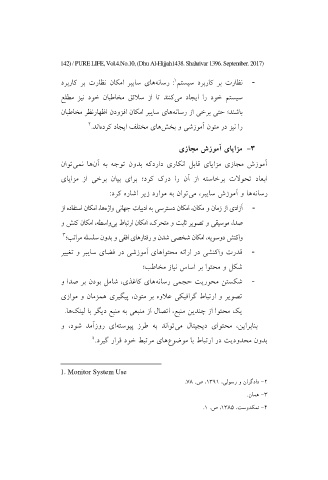 142) / PURE LIFE, Vol.4.No.10, (Dhu Al-Hijjah1438. Shahrivar 1396. September. 2017)
- نظارت بر کاربرد سیستم¹: رسانه‌های سایبر امکان نظارت بر کاربرد
سیستم خود را ایجاد می‌کنند تا از سلائق مخاطبان خود نیز مطلع
باشند؛ حتی برخی از رسانه‌های سایبر امکان افزودن اظهارنظر مخاطبان
را نیز در متون آموزشی و بخش‌های مختلف ایجاد کرده‌اند.²
۳- مزایای آموزش مجازی
آموزش مجازی مزایای قابل انکاری داردکه بدون توجه به آن‌ها نمی‌توان
ابعاد تحولات برخاسته از آن را درک کرد؛ برای بیان برخی از مزایای
رسانه‌ها و آموزش سایبر، می‌توان به موارد زیر اشاره کرد:
- آزادی از زمان و مکان، امکان دسترسی به ادبیات جهانی واژه‌ها، امکان استفاده از
صدا، موسیقی و تصویر ثابت و متحرک، امکان ارتباط بی‌واسطه، امکان کنش و
واکنش دوسویه، امکان شخصی شدن و رفتارهای افقی و بدون سلسله مراتب؛³
- قدرت واکنشی در ارائه محتواهای آموزشی در فضای سایبر و تغییر
شکل و محتوا بر اساس نیاز مخاطب؛
- شکستن محوریت حجمی رسانه‌های کاغذی، شامل بودن بر صدا و
تصویر و ارتباط گرافیکی علاوه بر متون، پیگیری همزمان و موازی
یک محتوا از چندین منبع، اتصال از منبعی به منبع دیگر با لینک‌ها.
بنابراین، محتوای دیجیتال می‌تواند به طرز پیوسته‌ای روزآمد شود، و
بدون محدودیت در ارتباط با موضوع‌های مرتبط خود قرار گیرد.⁴
1. Monitor System Use
۲- دادگران و رسولی، ۱۳۹۱، ص. ۷۸.
۳- همان.
۴- نمکدوست، ۱۳۸۵، ص. ۱.